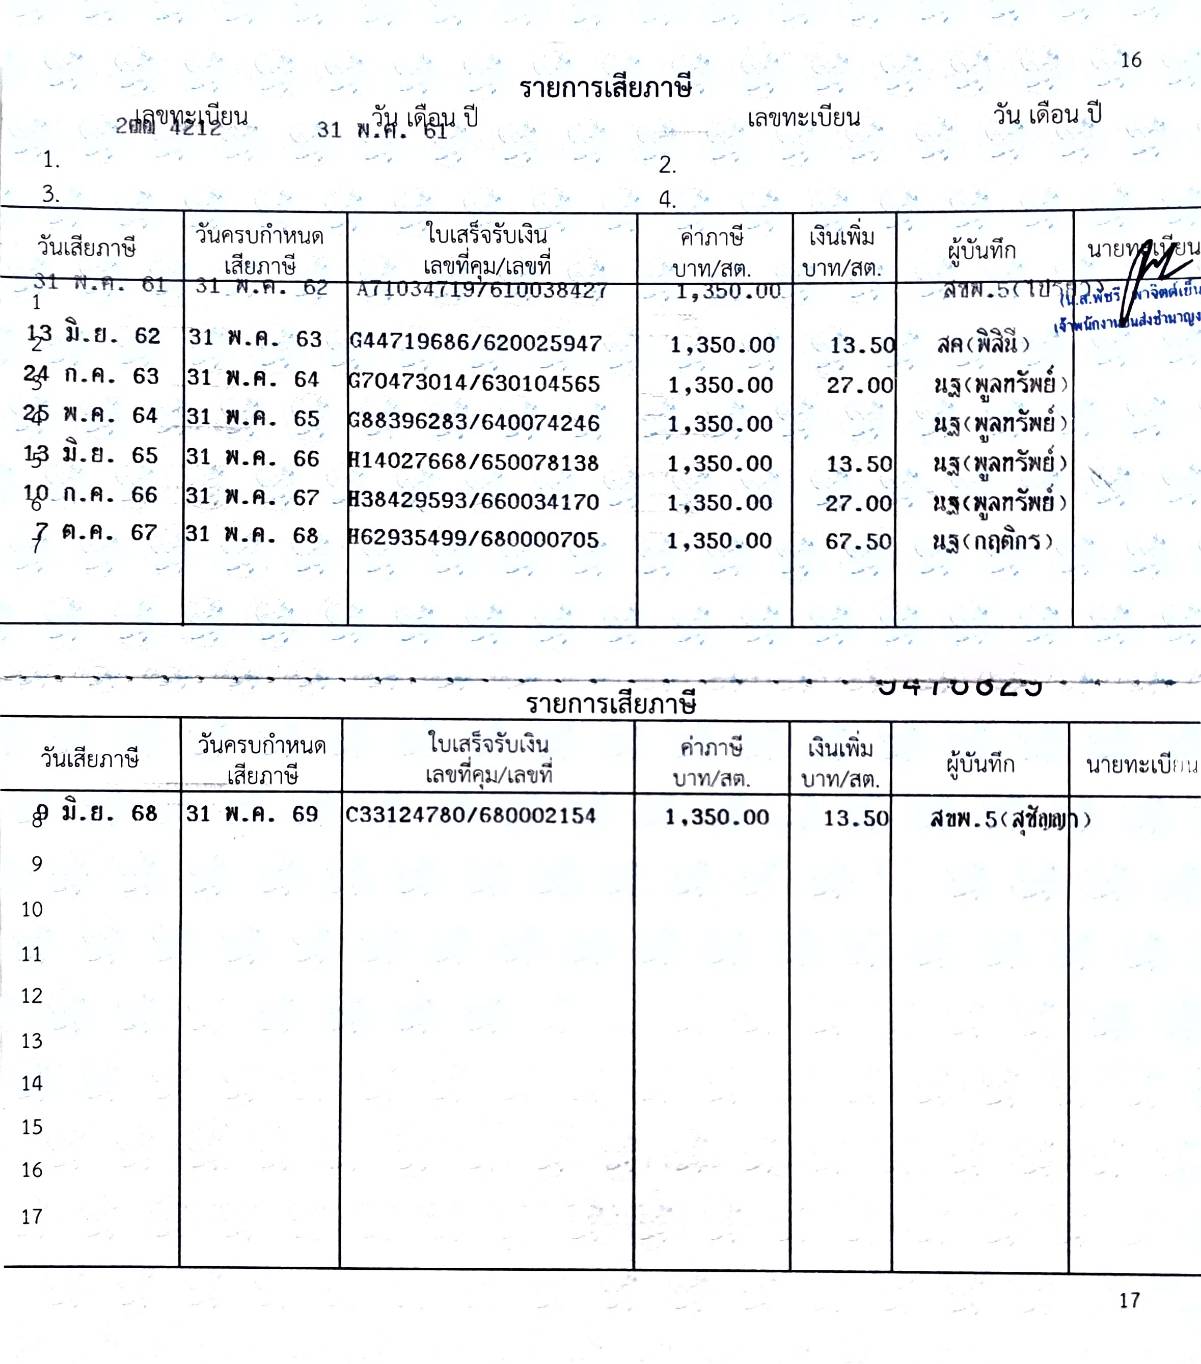 16
รายการเสียภาษี
เลขทะเบียน วัน เดือน ปี เลขทะเบียน วัน เดือน ปี
4212 31 พ.ค. 61
1. 2.
3. 4.
วันเสียภาษี วันครบกำหนด เสียภาษี ใบเสร็จรับเงิน เลขที่คุม/เลขที่ ค่าภาษี บาท/สต. เงินเพิ่ม บาท/สต. ผู้บันทึก นายทะเบียน
1 31 พ.ค. 61 31 พ.ค. 62 A71034719/610038427 1,350.00 สขพ.5
เจ้าพนักงานขนส่งชำนาญง
2 13 มิ.ย. 62 31 พ.ค. 63 G44719686/620025947 1,350.00 13.50 สค(พิสินี)
3 24 ก.ค. 63 31 พ.ค. 64 G70473014/630104565 1,350.00 27.00 นฐ(พูลทรัพย์)
4 25 พ.ค. 64 31 พ.ค. 65 G88396283/640074246 1,350.00 นฐ(พูลทรัพย์)
5 13 มิ.ย. 65 31 พ.ค. 66 H14027668/650078138 1,350.00 13.50 นฐ(พูลทรัพย์)
6 10 ก.ค. 66 31 พ.ค. 67 H38429593/660034170 1,350.00 27.00 นฐ(พูลทรัพย์)
7 7 ต.ค. 67 31 พ.ค. 68 H62935499/680000705 1,350.00 67.50 นฐ(กฤติกร)
รายการเสียภาษี
วันเสียภาษี วันครบกำหนด เสียภาษี ใบเสร็จรับเงิน เลขที่คุม/เลขที่ ค่าภาษี บาท/สต. เงินเพิ่ม บาท/สต. ผู้บันทึก นายทะเบียน
8 9 มิ.ย. 68 31 พ.ค. 69 C33124780/680002154 1,350.00 13.50 สขพ.5(สุชัญญา)
9
10
11
12
13
14
15
16
17
17